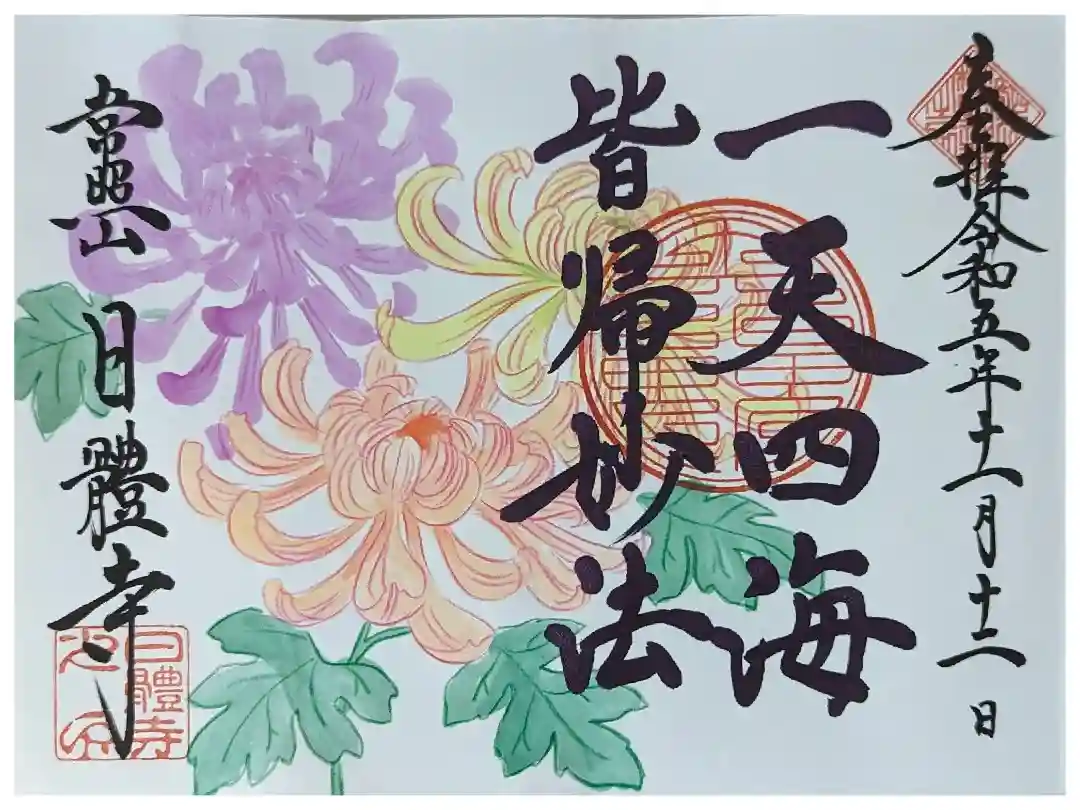 奉拝令和五年十一月十二日
一天四海
皆帰妙法
常照山
日體寺
日體寺
之印